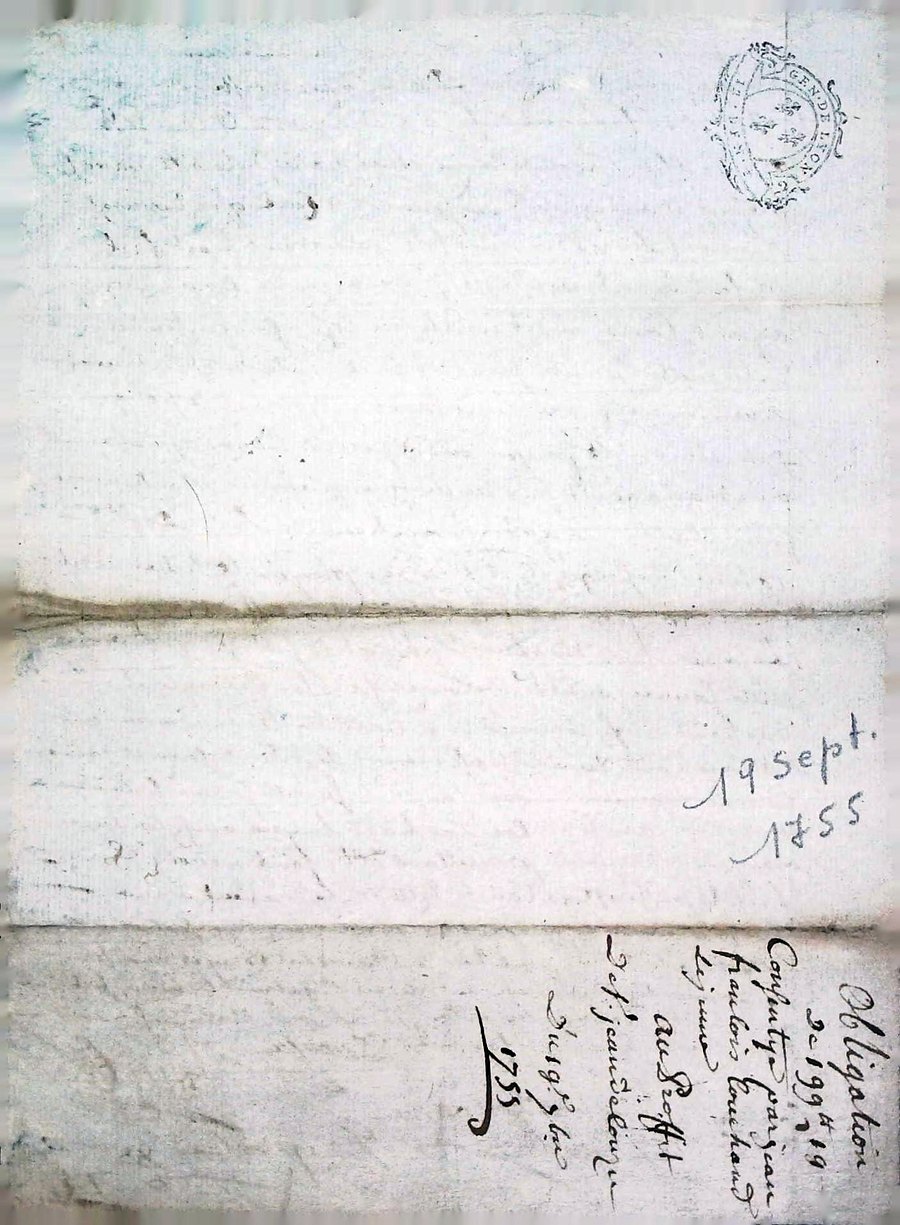 GEN. DE LYON
19 sept.
1755
Obligation
De 199 ᵗᵗ 19
Consentye par jean
francois Couchaud
le jeune
au Proffit
De Sʳ. jean
Du 19ᵉ. 7bre
1755